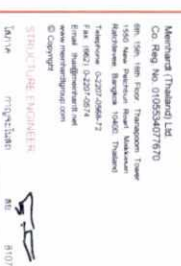 Meinhardt (Thailand) Ltd.
Co. Reg. No. 0105534077670
6th, 15th, 16th Floor Thanapoom Tower
1550 New Petchburi Road, Makkasan
Ratchtavee Bangkok 10400 Thailand
Telephone 0-2207-0568-72
Fax (662) 0-2207-0574
E-mail thai@meinhardt.net
www.meinhardtgroup.com
© Copyright
STRUCTURE ENGINEER
สย. 8107